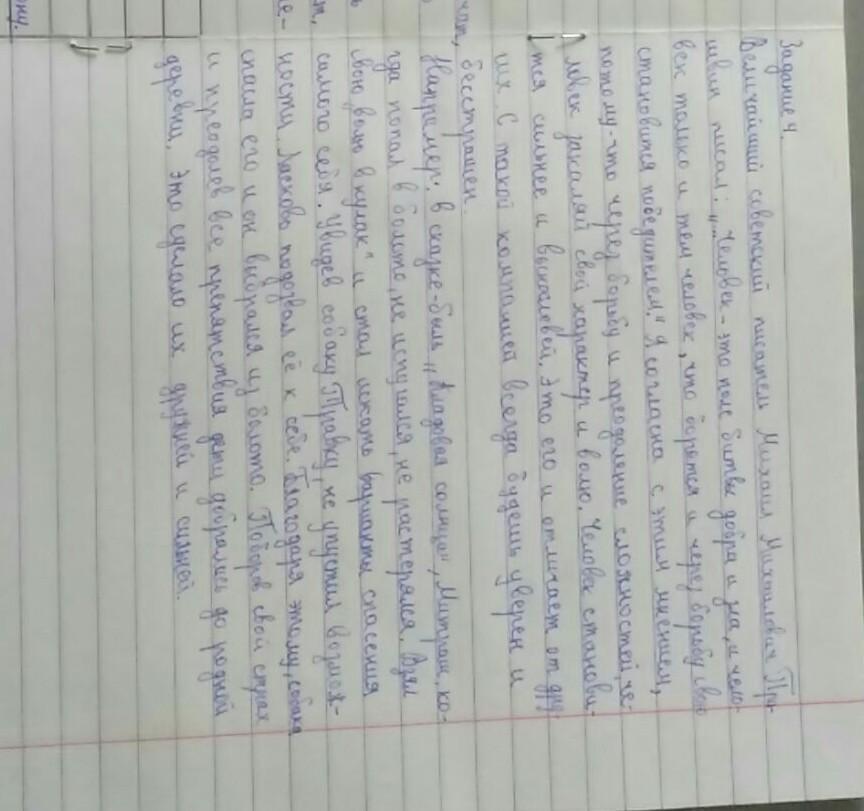 Задание 4.
Величайший советский писатель Михаил Михайлович При-
швин писал: „...Человек - это поле битвы добра и зла, и чело-
век только и тем человек, что борется и через борьбу свою
становится победителем." Я согласна с этим мнением,
потому-что через борьбу и преодоление сложностей, че-
ловек закаляй свой характер и волю. Человек станови-
тся сильнее и выносливей. Это его и отличает от дру-
гих. С такой компанией всегда будешь уверен и
бесстрашен.
Например: в сказке-быль „Кладовая солнца", Митраш, ко-
гда попал в болото, не испугался, не растерялся. Взял
свою „волю в кулак" и стал искать варианты спасения
самого себя. Увидев собаку Травку, не упустил возмож-
ности. Ласково подозвал её к себе. Благодаря этому, собака
спасла его и он выбрался из болота. Поборов свой страх
и преодолев все препятствия дети добрались до родной
деревни. Это сделало их дружней и сильней.